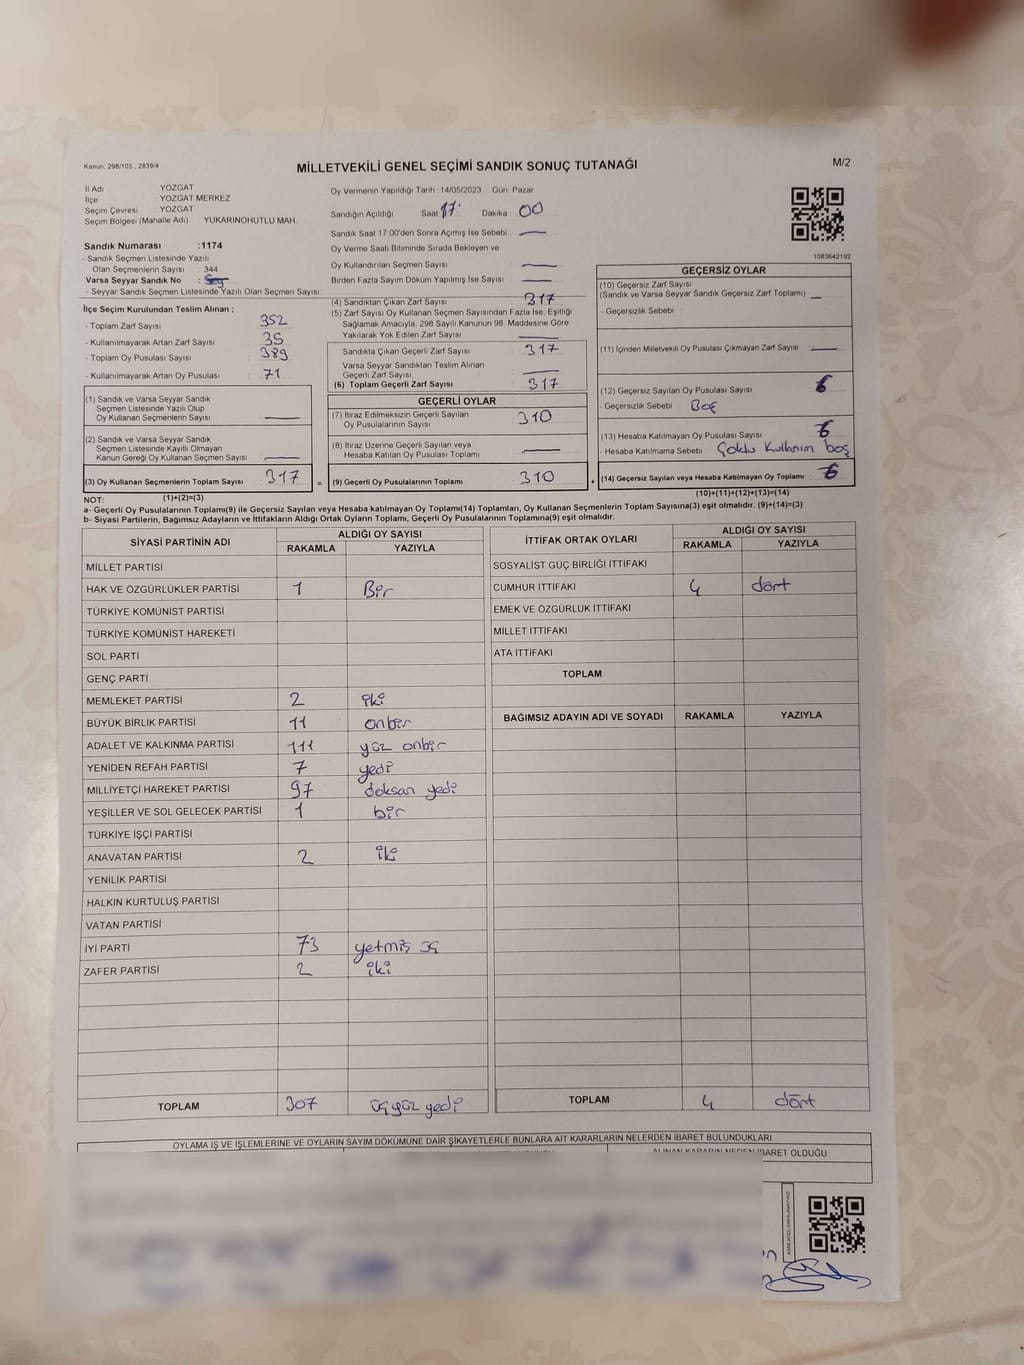 Kanun: 298/105 , 2839/4
MİLLETVEKİLİ GENEL SEÇİMİ SANDIK SONUÇ TUTANAĞI
M/2
İl Adı YOZGAT
İlçe YOZGAT MERKEZ
Seçim Çevresi YOZGAT
Seçim Bölgesi (Mahalle Adı) YUKARINOHUTLU MAH.
Sandık Numarası :1174
- Sandık Seçmen Listesinde Yazılı
Olan Seçmenlerin Sayısı : 344
Varsa Seyyar Sandık No :
- Seyyar Sandık Seçmen Listesinde Yazılı Olan Seçmen Sayısı:
İlçe Seçim Kurulundan Teslim Alınan ;
- Toplam Zarf Sayısı 352
- Kullanılmayarak Artan Zarf Sayısı 35
- Toplam Oy Pusulası Sayısı 389
- Kullanılmayarak Artan Oy Pusulası 71
(1) Sandık ve Varsa Seyyar Sandık
Seçmen Listesinde Yazılı Olup
Oy Kullanan Seçmenlerin Sayısı
(2) Sandık ve Varsa Seyyar Sandık
Seçmen Listesinde Kayıtlı Olmayan
Kanun Gereği Oy Kullanan Seçmen Sayısı
(3) Oy Kullanan Seçmenlerin Toplam Sayısı 317 =
(1)+(2)=(3)
Oy Vermenin Yapıldığı Tarih :14/05/2023 Gün: Pazar
Sandığın Açıldığı Saat 17: Dakika 00
Sandık Saat 17.00'den Sonra Açılmış İse Sebebi :
Oy Verme Saati Bitiminde Sırada Bekleyen ve
Oy Kullandırılan Seçmen Sayısı
Birden Fazla Sayım Döküm Yapılmış İse Sayısı :
(4) Sandıktan Çıkan Zarf Sayısı 317
(5) Zarf Sayısı Oy Kullanan Seçmen Sayısından Fazla İse, Eşitliği
Sağlamak Amacıyla, 298 Sayılı Kanunun 98. Maddesine Göre
Yakılarak Yok Edilen Zarf Sayısı
Sandıkta Çıkan Geçerli Zarf Sayısı 317
Varsa Seyyar Sandıktan Teslim Alınan
Geçerli Zarf Sayısı
(6) Toplam Geçerli Zarf Sayısı 317
GEÇERLİ OYLAR
(7) İtiraz Edilmeksizin Geçerli Sayılan
Oy Pusulalarının Sayısı 310
(8) İtiraz Üzerine Geçerli Sayılan veya
Hesaba Katılan Oy Pusulası Toplamı
(9) Geçerli Oy Pusulalarının Toplamı 310 +
1083642192
GEÇERSİZ OYLAR
(10) Geçersiz Zarf Sayısı
(Sandık ve Varsa Seyyar Sandık Geçersiz Zarf Toplamı)
- Geçersizlik Sebebi :
(11) İçinden Milletvekili Oy Pusulası Çıkmayan Zarf Sayısı
(12) Geçersiz Sayılan Oy Pusulası Sayısı
- Geçersizlik Sebebi Boş
(13) Hesaba Katılmayan Oy Pusulası Sayısı
- Hesaba Katılmama Sebebi : Çoklu Kullanım boş
(14) Geçersiz Sayılan veya Hesaba Katılmayan Oy Toplamı
(10)+(11)+(12)+(13)=(14)
NOT:
a- Geçerli Oy Pusulasının Toplamı(9) ile Geçersiz Sayılan veya Hesaba katılmayan Oy Toplamı(14) Toplamları, Oy Kullanan Seçmenlerin Toplam Sayısına(3) eşit olmalıdır. (9)+(14)=(3)
b- Siyasi Partilerin, Bağımsız Adayların ve İttifakların Aldığı Ortak Oyların Toplamı, Geçerli Oy Pusulalarının Toplamına(9) eşit olmalıdır.
SİYASİ PARTİNİN ADI ALDIĞI OY SAYISI
RAKAMLA YAZIYLA
MİLLET PARTİSİ
HAK VE ÖZGÜRLÜKLER PARTİSİ 1 Bir
TÜRKİYE KOMÜNİST PARTİSİ
TÜRKİYE KOMÜNİST HAREKETİ
SOL PARTİ
GENÇ PARTİ
MEMLEKET PARTİSİ 2 iki
BÜYÜK BİRLİK PARTİSİ 11 onbir
ADALET VE KALKINMA PARTİSİ 111 yüz onbir
YENİDEN REFAH PARTİSİ 7 yedi
MİLLİYETÇİ HAREKET PARTİSİ 97 doksan yedi
YEŞİLLER VE SOL GELECEK PARTİSİ 1 bir
TÜRKİYE İŞÇİ PARTİSİ
ANAVATAN PARTİSİ 2 iki
YENİLİK PARTİSİ
HALKIN KURTULUŞ PARTİSİ
VATAN PARTİSİ
İYİ PARTİ 73 yetmiş üç
ZAFER PARTİSİ 2 iki
TOPLAM 307 üçyüz yedi
İTTİFAK ORTAK OYLARI ALDIĞI OY SAYISI
RAKAMLA YAZIYLA
SOSYALİST GÜÇ BİRLİĞİ İTTİFAKI
CUMHUR İTTİFAKI 4 dört
EMEK VE ÖZGÜRLÜK İTTİFAKI
MİLLET İTTİFAKI
ATA İTTİFAKI
TOPLAM
BAĞIMSIZ ADAYIN ADI VE SOYADI RAKAMLA YAZIYLA
TOPLAM 4 dört
OYLAMA İŞ VE İŞLEMLERİNE VE OYLARIN SAYIM DÖKÜMÜNE DAİR ŞİKAYETLERLE BUNLARA AİT KARARLARIN NELERDEN İBARET BULUNDUKLARI
ALINAN KARARIN NEDEN İBARET OLDUĞU